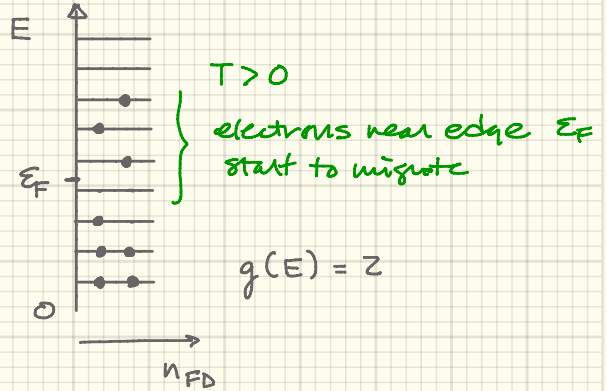 E
T > 0
electrons near edge ε_F
start to migrate
ε_F
g(E) = 2
0
n_FD